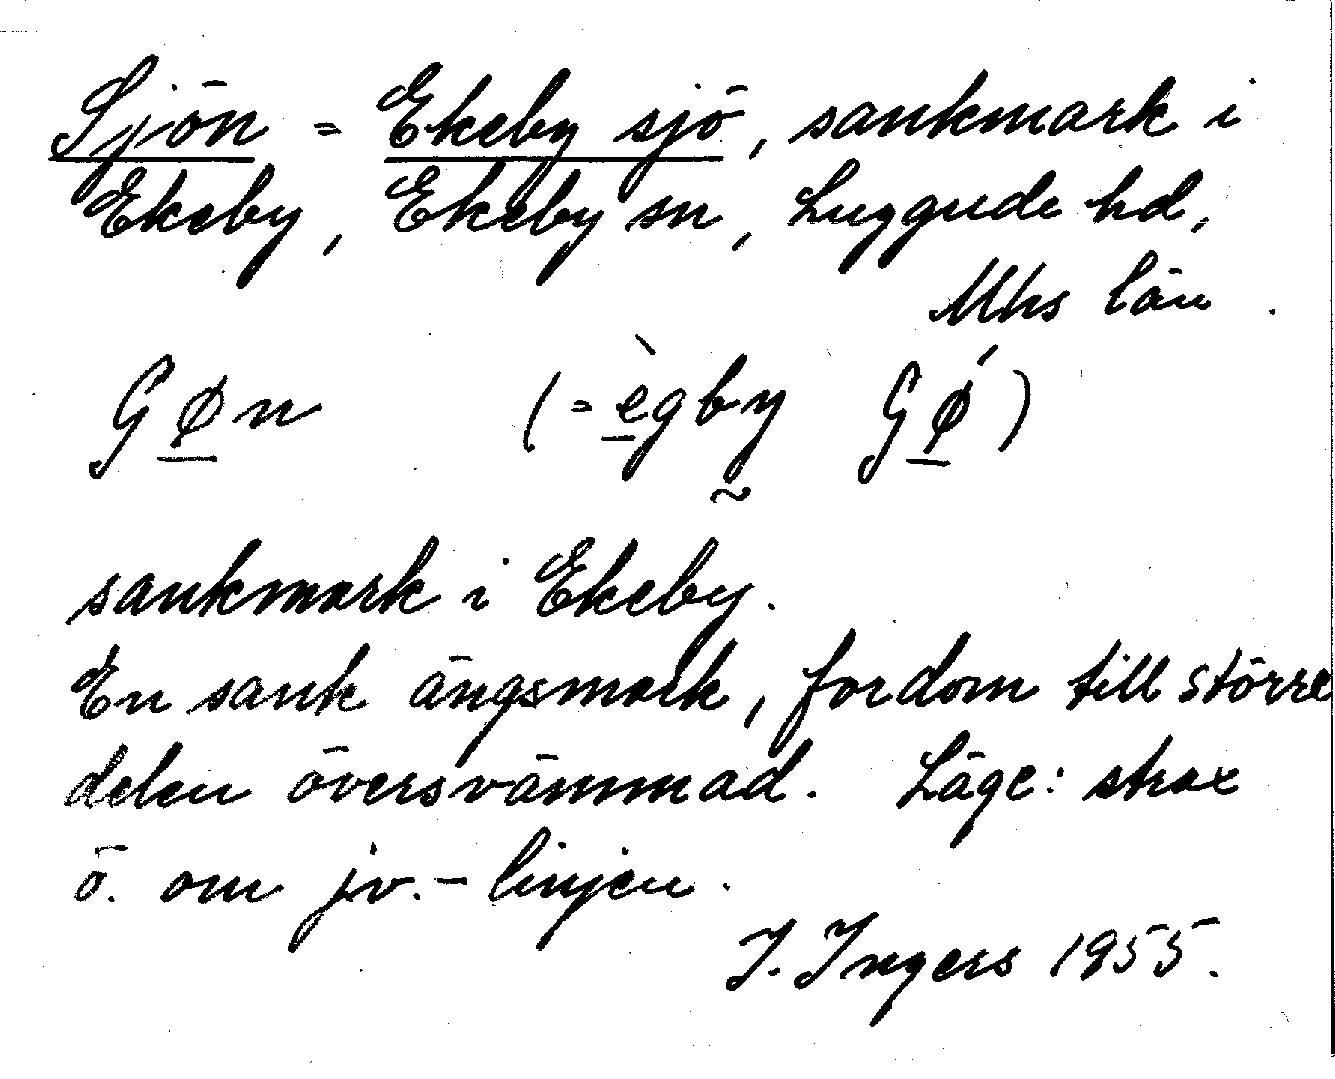 Sjön = Ekeby sjö, sankmark i
Ekeby, Ekeby sn, Luggude hd,
Mhs län.
Gø̲n (= è̲gby̰ Gǿ̲)
sankmark i Ekeby.
En sank ängsmark, fordom till större
delen översvämmad. Läge: strax
ö. om jv.-linjen.
I. Ingers 1955.